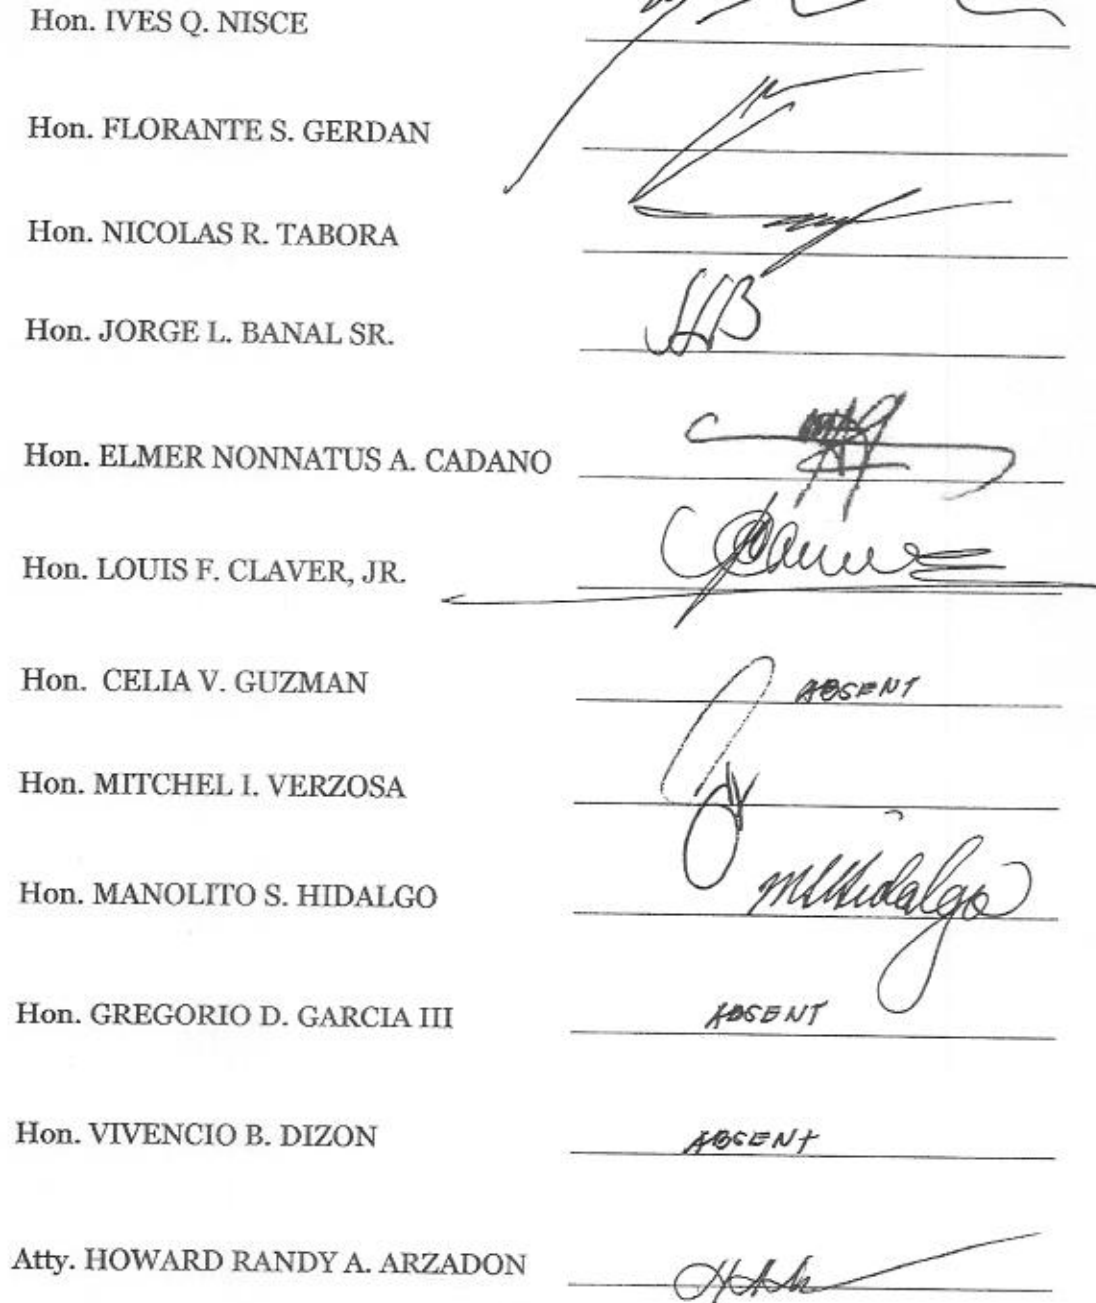 Hon. IVES Q. NISCE
Hon. FLORANTE S. GERDAN
Hon. NICOLAS R. TABORA
Hon. JORGE L. BANAL SR.
Hon. ELMER NONNATUS A. CADANO
Hon. LOUIS F. CLAVER, JR.
Hon. CELIA V. GUZMAN ABSENT
Hon. MITCHEL I. VERZOSA
Hon. MANOLITO S. HIDALGO
Hon. GREGORIO D. GARCIA III ABSENT
Hon. VIVENCIO B. DIZON ABSENT
Atty. HOWARD RANDY A. ARZADON